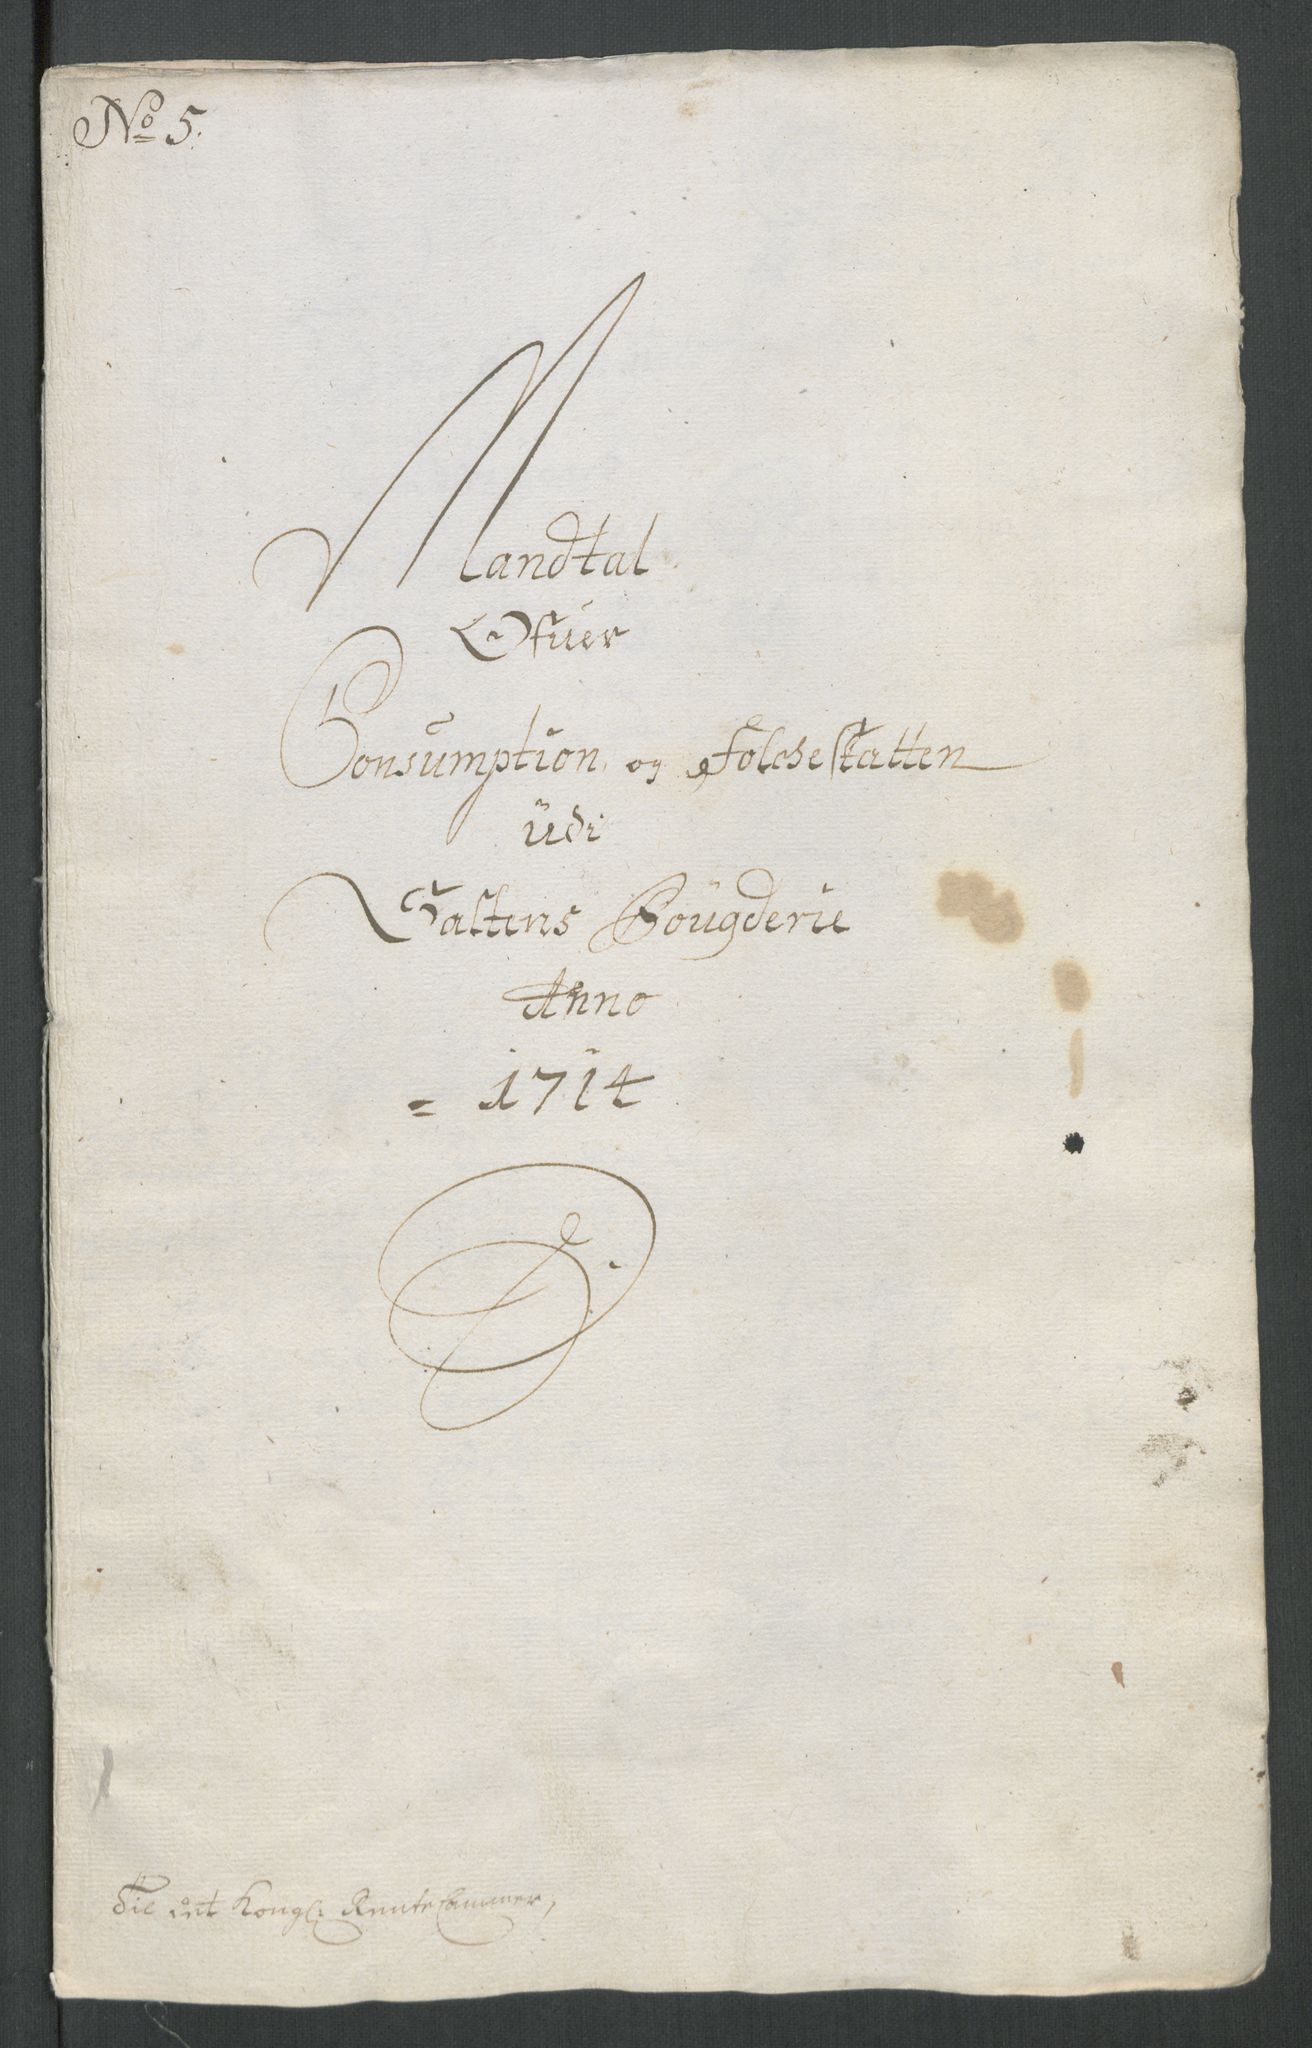 No 5.
Mandtal
Ofuer
Consumption og Folcheskatten
Udi
Saltens Fougderie
Anno
= 1714
Til det Kongl: Rente Cammer,